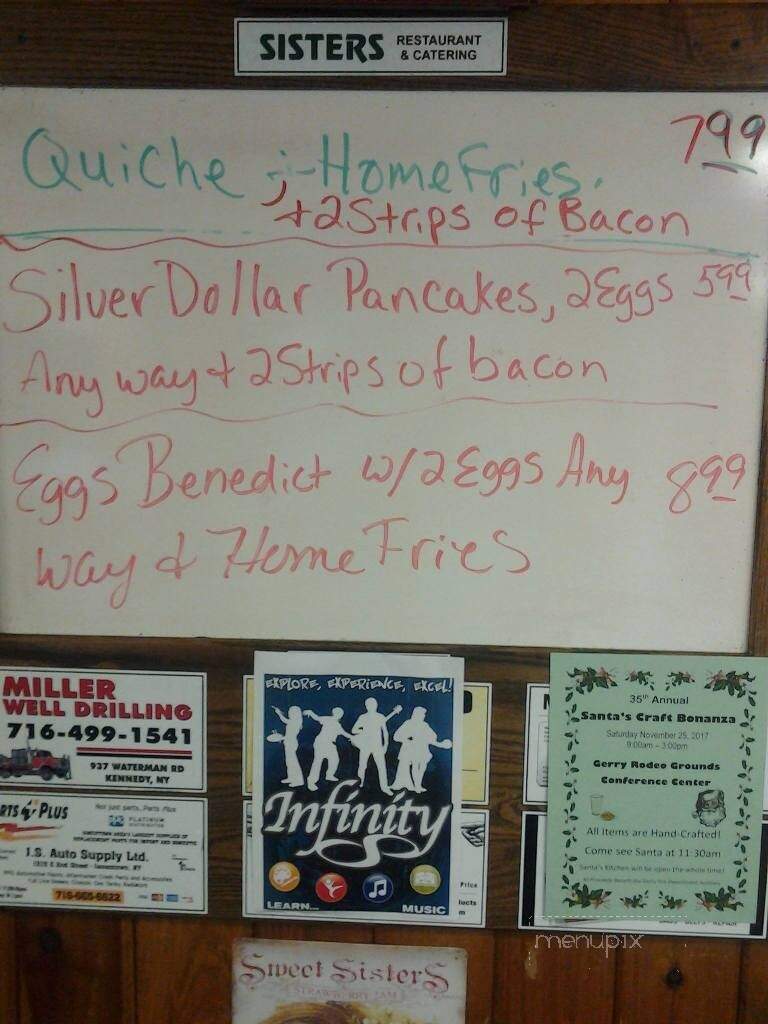 SISTERS RESTAURANT & CATERING
Quiche ;- Home Fries. 7.99
+ 2 Strips of Bacon
Silver Dollar Pancakes, 2 Eggs 5.99
Any way + 2 Strips of bacon
Eggs Benedict w/ 2 Eggs Any 8.99
way & Home Fries
MILLER
WELL DRILLING
716-499-1541
937 WATERMAN RD
KENNEDY, NY
RTS PLUS
Not just parts, Parts Plus
PLATINUM
J.S. Auto Supply Ltd.
716-665-6622
EXPLORE, EXPERIENCE, EXCEL!
Infinity
LEARN...
MUSIC
Price
35th Annual
Santa's Craft Bonanza
Saturday November 25, 2017
9:00am - 3:00pm
Gerry Rodeo Grounds
Conference Center
All Items are Hand-Crafted!
Come see Santa at 11:30am
Santa's Kitchen will be open the whole time!
menupix
Sweet Sisters
STRAWBERRY JAM